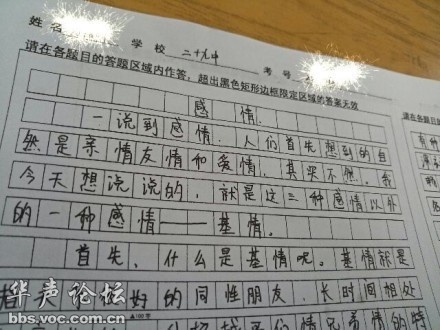 姓名 学校 二十九中 考号
请在各题目的答题区域内作答，超出黑色矩形边框限定区域的答案无效
请在各题目
感情
一说到感情，人们首先想到的自
然是亲情友情和爱情，其实不然。我
今天想说说的，就是这三种感情以外
的一种感情——基情。
首先，什么是基情呢。基情就是
好的同性朋友，长时间相处
▲100字
华声论坛
bbs.voc.com.cn